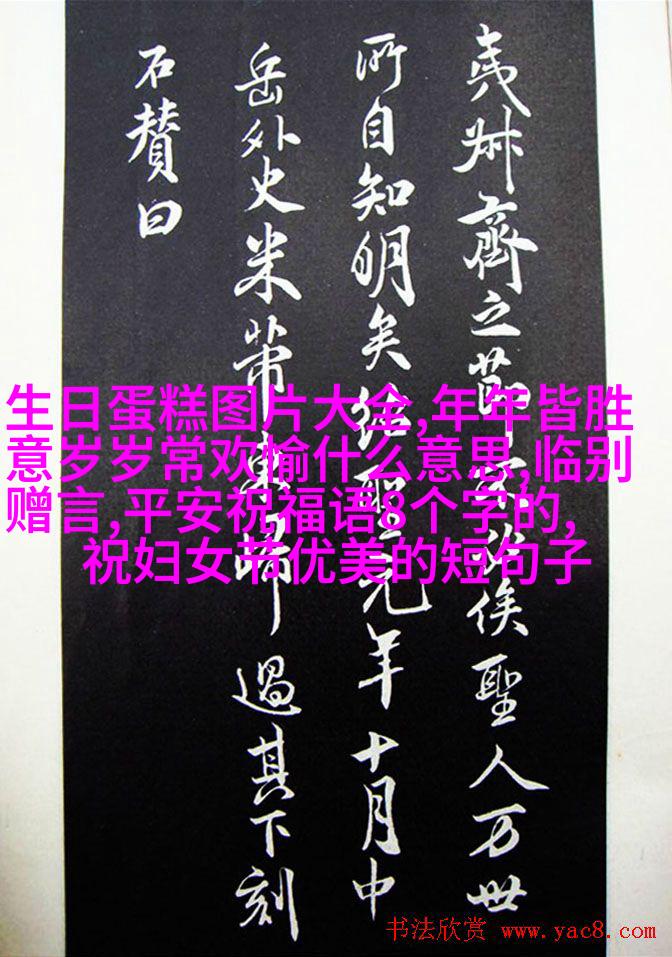 夷叔齊之節俟聖人万世
所自知明矣紹聖元年十月中
岳外史米芾東歸過其下刻
石賛曰
生日蛋糕图片大全,年年皆胜
意岁岁常欢愉什么意思,临别
赠言,平安祝福语8个字的,
祝妇女节优美的短句子
书法欣赏 www.yac8.com